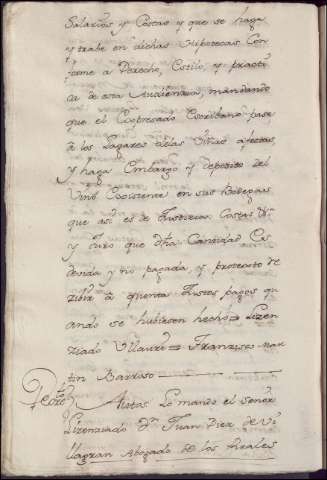 Salarios, y Costas y que se haga
y trabe en dichas Hipotecas Con
forme a Derecho, Estilo, y practi
ca de esta Audiencia, mandando
que el Expresado Escribano pase
a los Lagares de las Viñas afectas,
y haga Embargo y deposito del
Vino Existente en sus Bodegas
que asi es de Justicia Costas &ra
y Juro que dha Cantidad Es
devida y no pagada, y protexto Re
zibir a quenta Justos pagos qu
ando se hubiesen hecho = Lizen
ziado Villavre = Franzisco Mar
tin Barroso
Auto Autos: Lo mandó el señor
Lizenziado Dn Juan Diez de Vi
llagran Abogado de los Reales